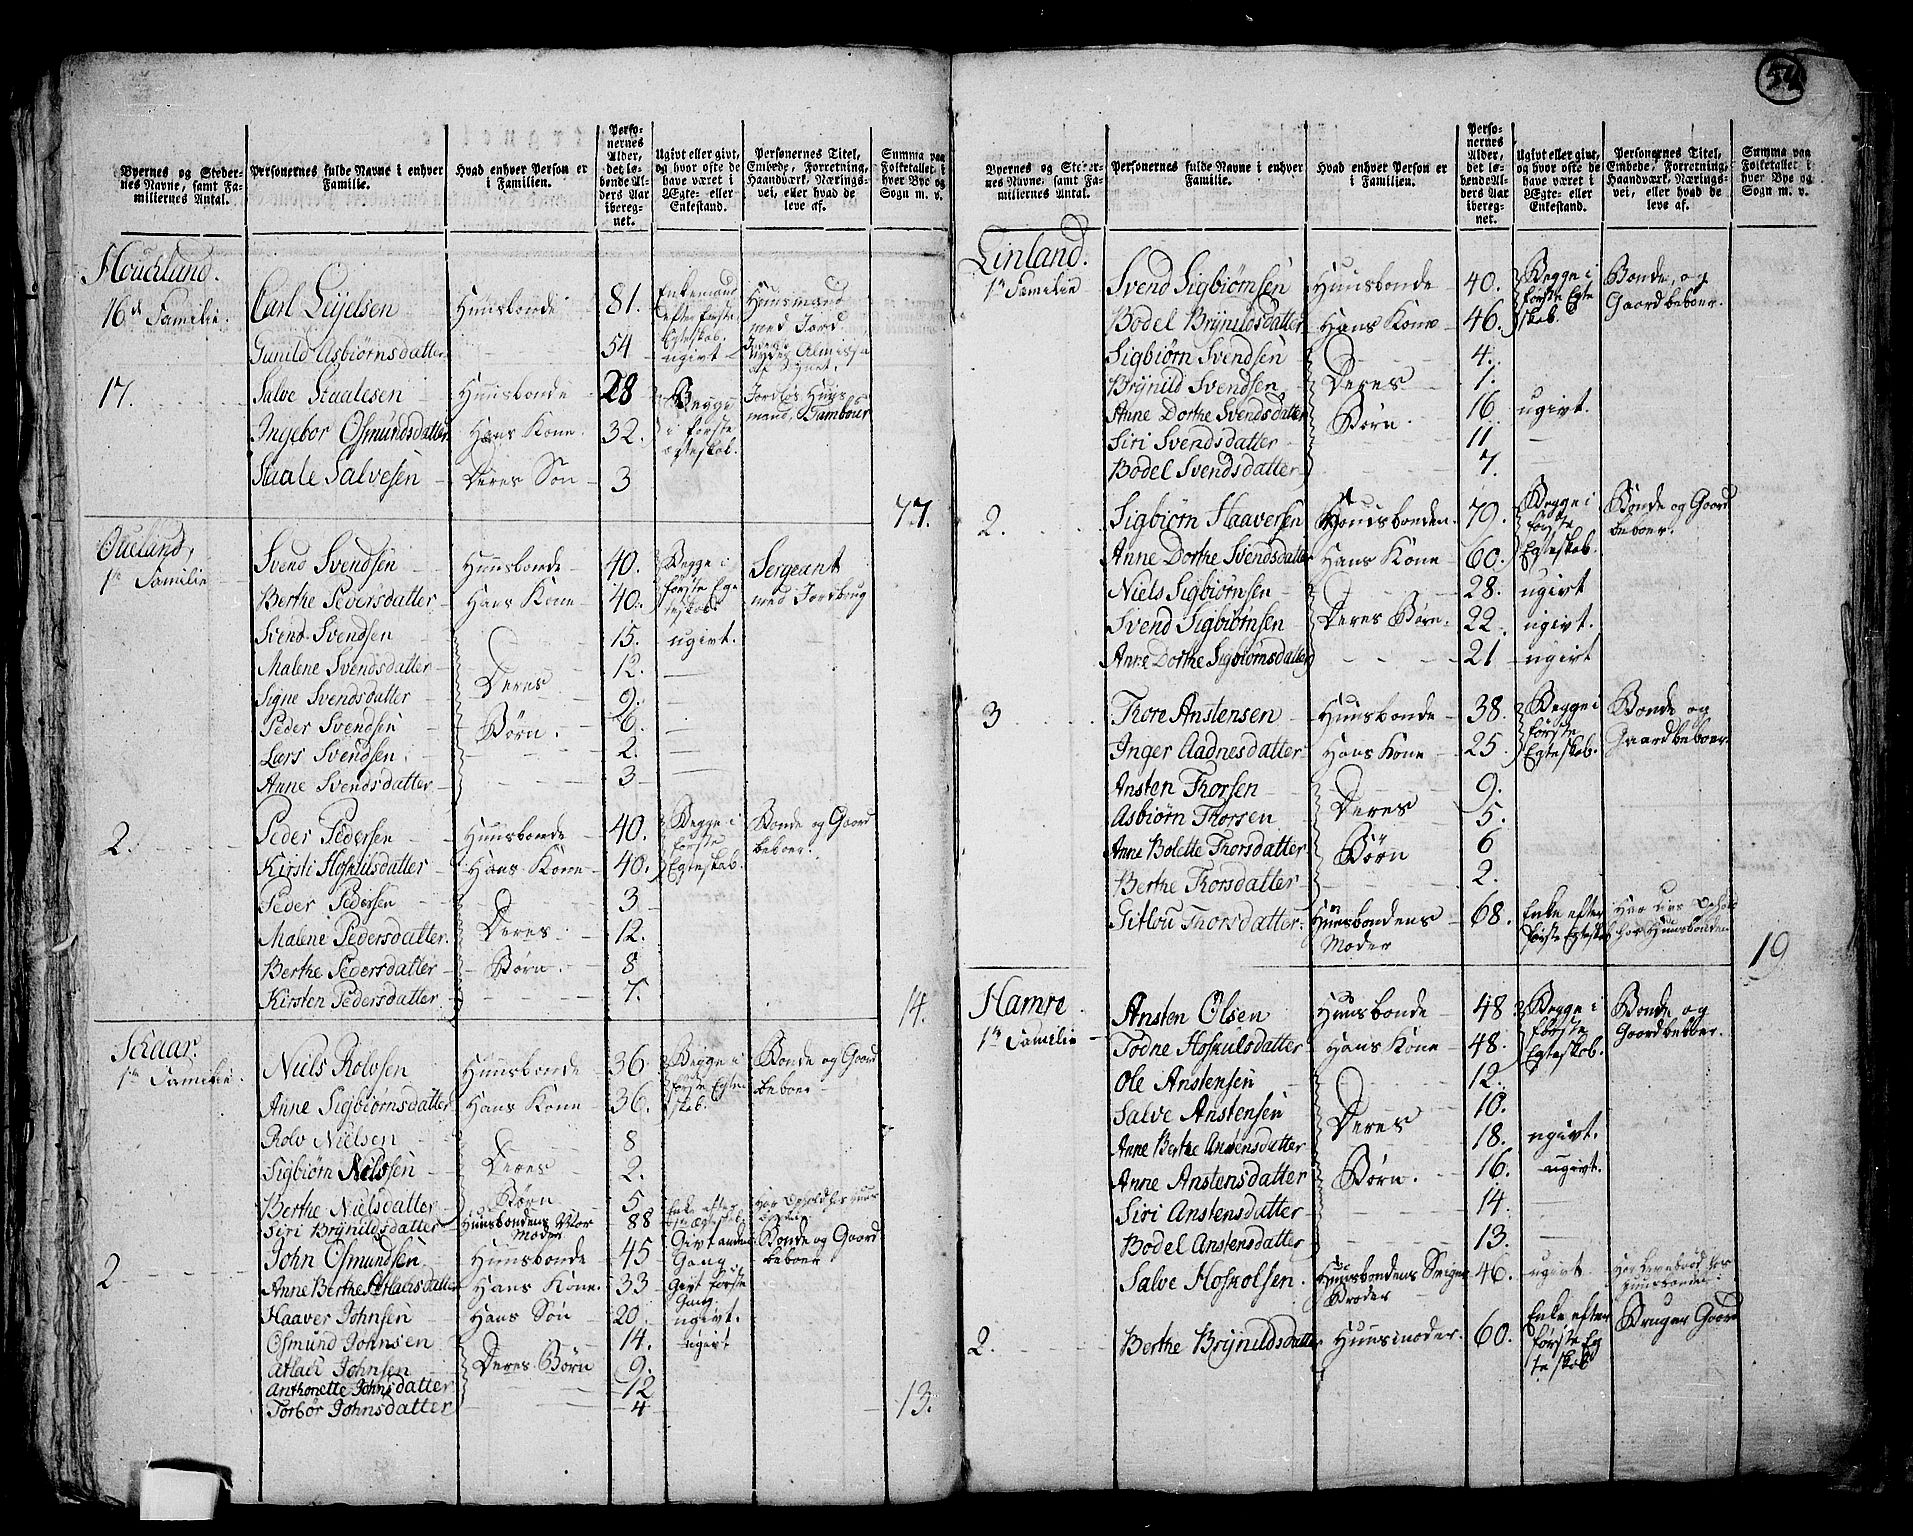 54
Byernes og Steder-
nes Navne, samt Fa-
miliernes Antal.
Personernes fulde Navne i enhver
Familie.
Hvad enhver Person er
i Familien.
Perso-
nernes
Alder,
det le-
bende Al-
ders Aar
ibereg-
net.
Ugivt eller givt,
og hvor ofte de
have været i
Ægte- eller
Enkestand.
Personernes Titel,
Embede, Forretning,
Haandværk, Nærings-
vei, eller hvad de
leve af.
Summa paa
Folketallet i
hver Bye og
Sogn m. v.
16de Familie.
Carl Leijelsen Huusbonde 81. Enkemand efter første Egteskab. Huusmand med Jord
Gunild Asbiørnsdatter 54 ugivt nyder Almisse af Sognet.
17. Salve Staalesen Huusbonde 28 Begge i første egteskab. Jordløs Huusmand, Tambour
Ingebor Osmundsdatter Hans Kone 32.
Staale Salvesen Deres Søn 3
77.
Oueland,
1ste Familie
Svend Svendsen Huusbonde 40. Begge i første Egteskab Sergeant med Jordbrug
Berthe Pedersdatter Hans Kone 40.
Svend Svendsen 15. ugivt.
Malene Svendsdatter 12.
Signe Svendsdatter Deres 9.
Peder Svendsen Børn. 6.
Lars Svendsen 2.
Anne Svendsdatter 3
2. Peder Pedersen Huusbonde 40. Begge i første Egteskab. Bonde og Gaardbeboer.
Kirsti Hoskulsdatter Hans Kone 40.
Peder Pedersen 3
Malene Pedersdatter. Deres 12.
Berthe Pedersdatter Børn. 8
Kirsten Pedersdatter 7.
14.
Skaar.
1ste Familie.
Niels Rolvsen Huusbonde 36. Begge i første Egteskab. Bonde og Gaardbeboer
Anne Sigbiørnsdatter Hans Kone 36.
Rolv Nielsen 8
Sigbiørn Nilssen Deres 2.
Berthe Nielsdatter Børn 5
Siri Brynildsdatter Huusbondens Moder 88 Enke efter
2 John Osmundsen Huusbonde 45 Givt anden Gang Bonde og Gaardbeboer
Anne Berthe Atlaksdatter Hans Kone. 33 Givt første Gang
Haaver Johnsen Hans Søn 20. ugivt.
Osmund Johnsen 14. ugivt
Atlak Johnsen Deres Børn 9.
Anthonette Johnsdatter 12
Torbør Johnsdatter 4
13.
Byernes og Steder-
nes Navne, samt Fa-
miliernes Antal.
Personernes fulde Navne i enhver
Familie.
Hvad enhver Person er
i Familien.
Perso-
nernes
Alder,
det le-
bende Al-
ders Aar
ibereg-
net.
Ugivt eller givt,
og hvor ofte de
have været i
Ægte- eller
Enkestand.
Personernes Titel,
Embede, Forretning,
Haandværk, Nærings-
vei, eller hvad de
leve af.
Summa paa
Folketallet i
hver Bye og
Sogn m. v.
Linland.
1ste Familie
Svend Sigbiørnsen Huusbonde 40. Begge i første Egteskab. Bonde, og Gaardbeboer.
Bodel Brynildsdatter Hans Kone 46.
Sigbiørn Svendsen 4.
Brynild Svendsen Deres 1.
Anne Dorthe Svendsdatter Børn. 16 ugivt.
Siri Svendsdatter 11
Bodel Svendsdatter 7.
2. Sigbiørn Haaversen Huusbonden. 79. Begge i første Egteskab. Bonde og Gaardbeboer.
Anne Dorthe Svendsdatter Hans Kone 60.
Niels Sigbiørnsen 28. ugivt
Svend Sigbiørnsen Deres Børn. 22. ugivt.
Anne Dorthe Sigbiørnsdatter 21 ugivt
3 Thore Anstensen Huusbonde 38. Begge i første Egteskab. Bonde og Gaardbeboer.
Inger Aadnesdatter Hans Kone 25.
Ansten Thorsen 9.
Asbiørn Thorsen Deres 5.
Anne Bolette Thorsdatter Børn 6
Berthe Thorsdatter 2.
Gitlou Thorsdatter Huusbondens Moder 68. Enke efter første Egteskab har Ophold hos Huusbonden
19
Hamre
1ste Familie
Ansten Olsen Huusbonde 48. Begge i første Egteskab. Bonde og Gaardbeboer.
Todne Hoskulsdatter Hans Kone 48.
Ole Anstensen 12.
Salve Anstensen Deres 10.
Anne Berthe Anstensdatter 18. ugivt.
Anne Anstensdatter Børn. 16. ugivt.
Siri Anstensdatter 14
Bodel Anstensdatter 13.
Salve Hoskolsen. Huusbondens Broder 46. ugivt
2. Berthe Brynildsdatter Huusmoder. 60. Enke efter første Egteskab Bruger Gaard